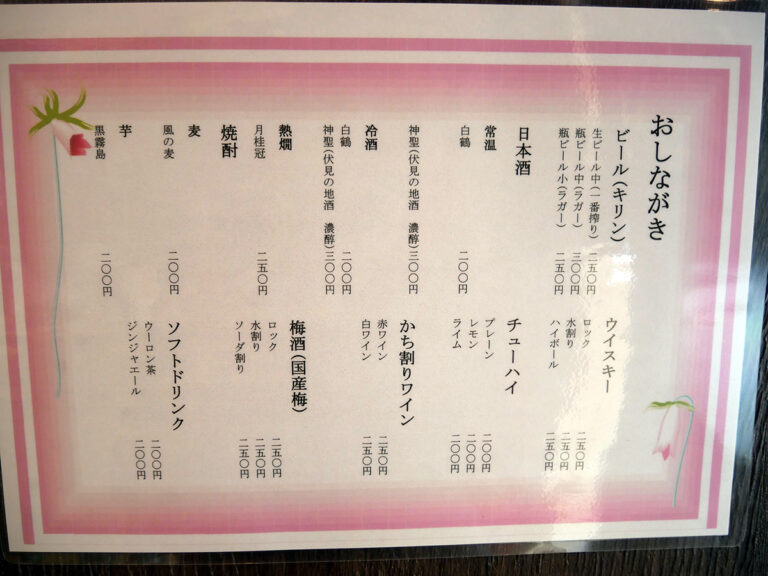 おしながき
ビール(キリン)
生ビール中(一番搾り) 二五〇円
瓶ビール中(ラガー) 三〇〇円
瓶ビール小(ラガー) 二五〇円
日本酒
常温
白鶴 二〇〇円
神聖(伏見の地酒 濃醇)三〇〇円
冷酒
白鶴 二〇〇円
神聖(伏見の地酒 濃醇)三〇〇円
熱燗
月桂冠 二五〇円
焼酎
麦
風の麦 二〇〇円
芋
黒霧島 二〇〇円
ウイスキー
ロック 二五〇円
水割り 二五〇円
ハイボール 二五〇円
チューハイ
プレーン 二〇〇円
レモン 二〇〇円
ライム 二〇〇円
かち割りワイン
赤ワイン 二五〇円
白ワイン 二五〇円
梅酒(国産梅)
ロック 二五〇円
水割り 二五〇円
ソーダ割り 二五〇円
ソフトドリンク
ウーロン茶 二〇〇円
ジンジャエール 二〇〇円